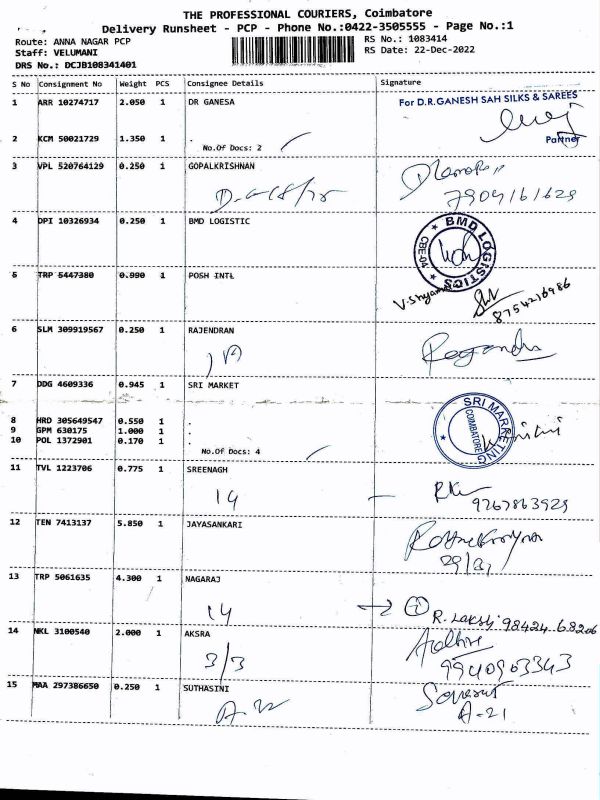 THE PROFESSIONAL COURIERS, Coimbatore
Delivery Runsheet - PCP - Phone No.:0422-3505555 - Page No.:1
Route: ANNA NAGAR PCP
RS No.: 1083414
Staff: VELUMANI
RS Date: 22-Dec-2022
DRS No.: DCJB108341401
S No Consignment No Weight PCS Consignee Details Signature
1 ARR 10274717 2.050 1 DR GANESA
For D.R.GANESH SAH SILKS & SAREES
2 KCM 50021729 1.350 1 .
Partner
No.Of Docs: 2
3 VPL 520764129 0.250 1 GOPALKRISHNAN
7904161629
4 DPI 10326934 0.250 1 BMD LOGISTIC
BMD LOGISTICS
CBE-04
5 TRP 5447380 0.990 1 POSH INTL
8754216986
6 SLM 309919567 0.250 1 RAJENDRAN
7 DDG 4609336 0.945 1 SRI MARKET
SRI MARKETING
COIMBATORE
8 HRD 305649547 0.550 1 .
9 GPM 630175 1.000 1 .
10 POL 1372901 0.170 1 .
No.Of Docs: 4
11 TVL 1223706 0.775 1 SREENAGH
14
9267863929
12 TEN 7413137 5.850 1 JAYASANKARI
13 TRP 5061635 4.300 1 NAGARAJ
14
98424 68206
14 NKL 3100540 2.000 1 AKSRA
3/3
9940903343
15 MAA 297386650 0.250 1 SUTHASINI
A-21